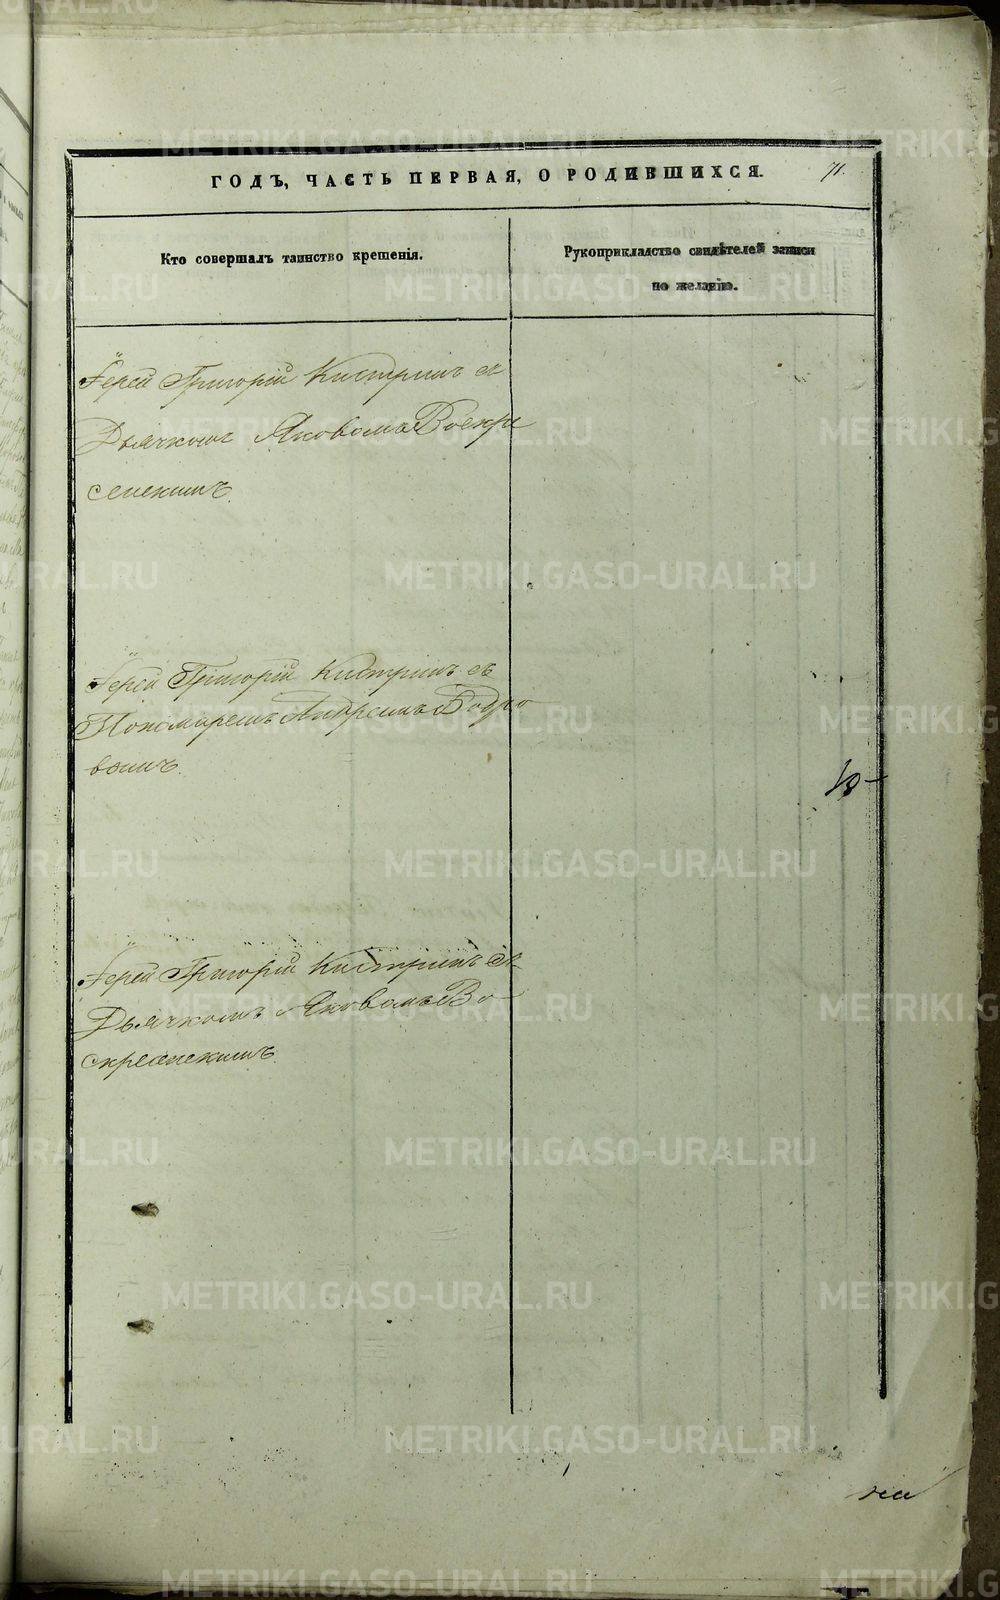 ГОДЪ, ЧАСТЬ ПЕРВАЯ, О РОДИВШИХСЯ.
71.
Кто совершалъ таинство крещенія.
Рукоприкладство свидѣтелей записи
по желанію.
Іерей Григорій Кистринъ съ
Дьячкомъ Яковомъ Воскре
сенскимъ.
Іерей Григорій Кистринъ съ
Пономаремъ Андреемъ Бодро
вымъ.
Іерей Григорій Кистринъ съ
Дьячкомъ Яковомъ Во-
скресенскимъ.
METRIKI.GASO-URAL.RU